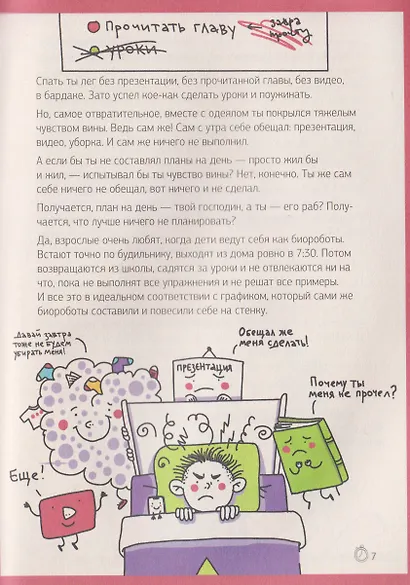 Прочитать главу ← завтра прочту
уроки
Спать ты лег без презентации, без прочитанной главы, без видео,
в бардаке. Зато успел кое-как сделать уроки и поужинать.
Но, самое отвратительное, вместе с одеялом ты покрылся тяжелым
чувством вины. Ведь сам же! Сам с утра себе обещал: презентация,
видео, уборка. И сам же ничего не выполнил.
А если бы ты не составлял планы на день — просто жил бы
и жил, — испытывал бы ты чувство вины? Нет, конечно. Ты же сам
себе ничего не обещал, вот ничего и не сделал.
Получается, план на день — твой господин, а ты — его раб? Полу-
чается, что лучше ничего не планировать?
Да, взрослые очень любят, когда дети ведут себя как биороботы.
Встают точно по будильнику, выходят из дома ровно в 7:30. Потом
возвращаются из школы, садятся за уроки и не отвлекаются ни на
что, пока не выполнят все упражнения и не решат все примеры.
И все это в идеальном соответствии с графиком, который сами же
биороботы составили и повесили себе на стенку.
Давай завтра
тоже не будем
убирать меня!
Обещал же
меня сделать!
ПРЕЗЕНТАЦИЯ
Почему ты
меня не прочел?
Еще!
7